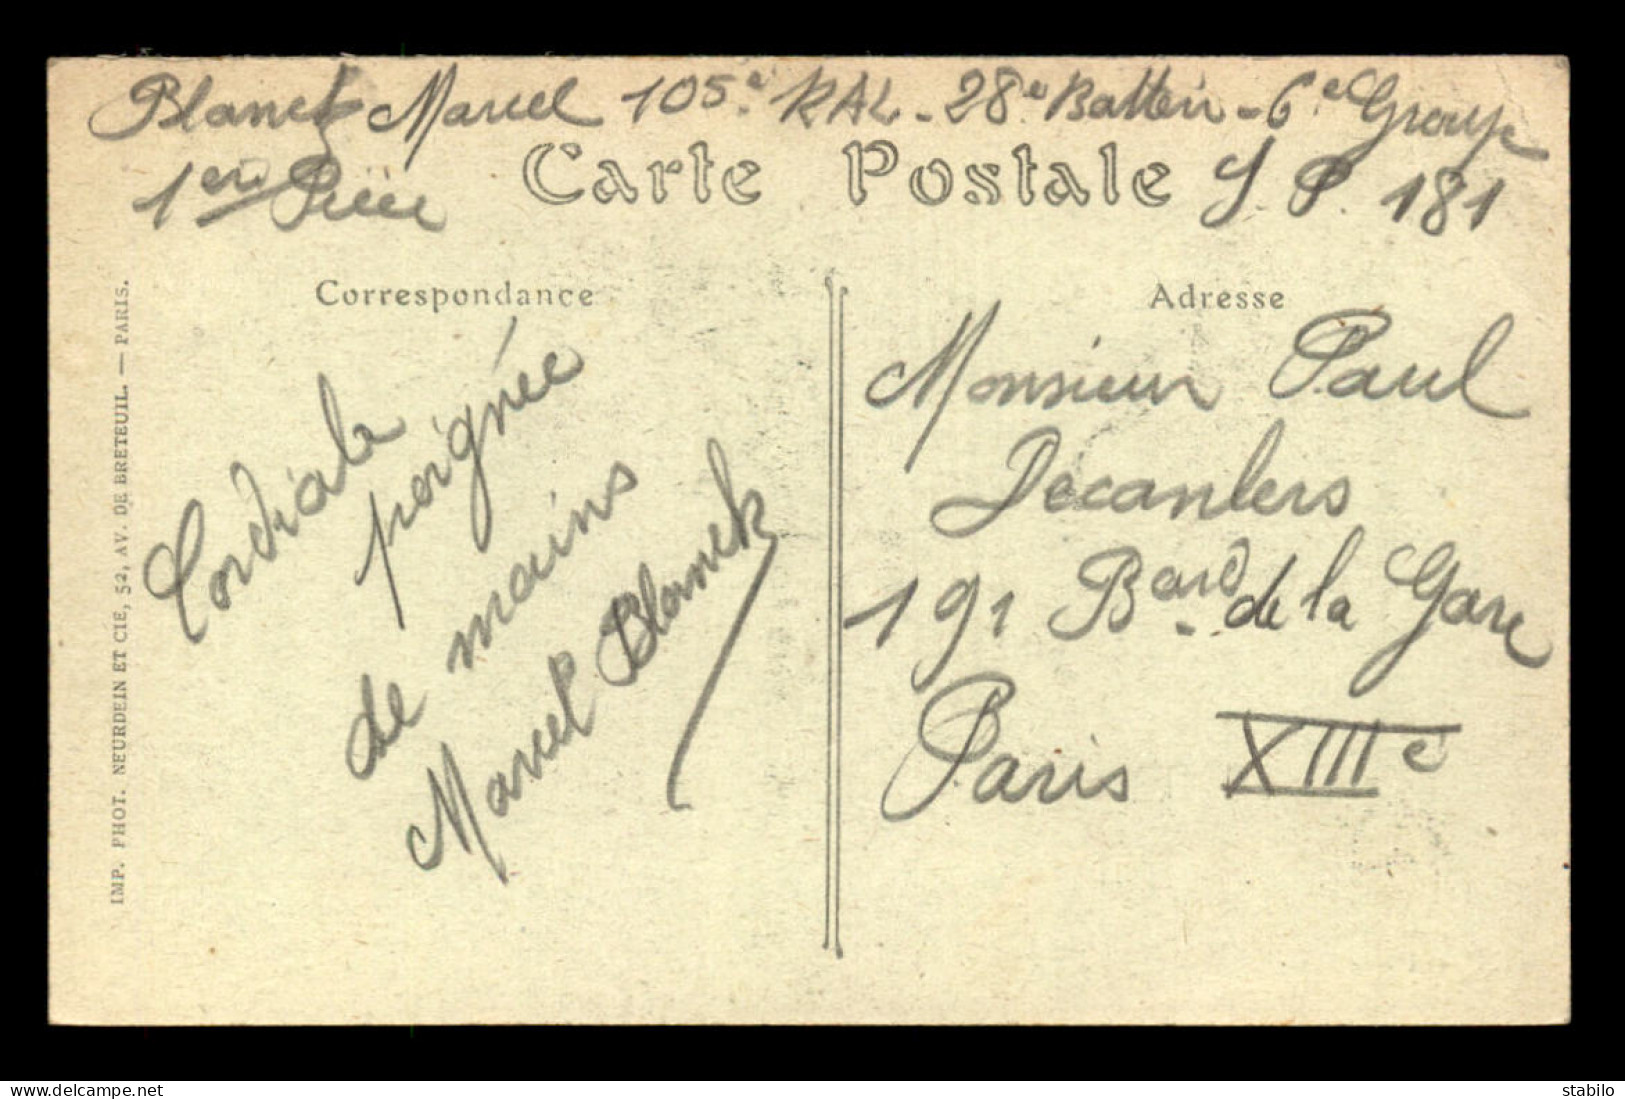 Blanck Marcel 105e RAL - 28e Batterie - 6e Groupe
1ere Pièce S. P. 181
Carte Postale
Correspondance
Cordiale
poignée
de mains
Marcel Blanck
IMP. PHOT. NEURDEIN ET CIE, 52, AV. DE BRETEUIL. — PARIS.
Adresse
Monsieur Paul
Decanlers
191 Bard de la Gare
Paris XIIIe
delcampe.net
stabilo